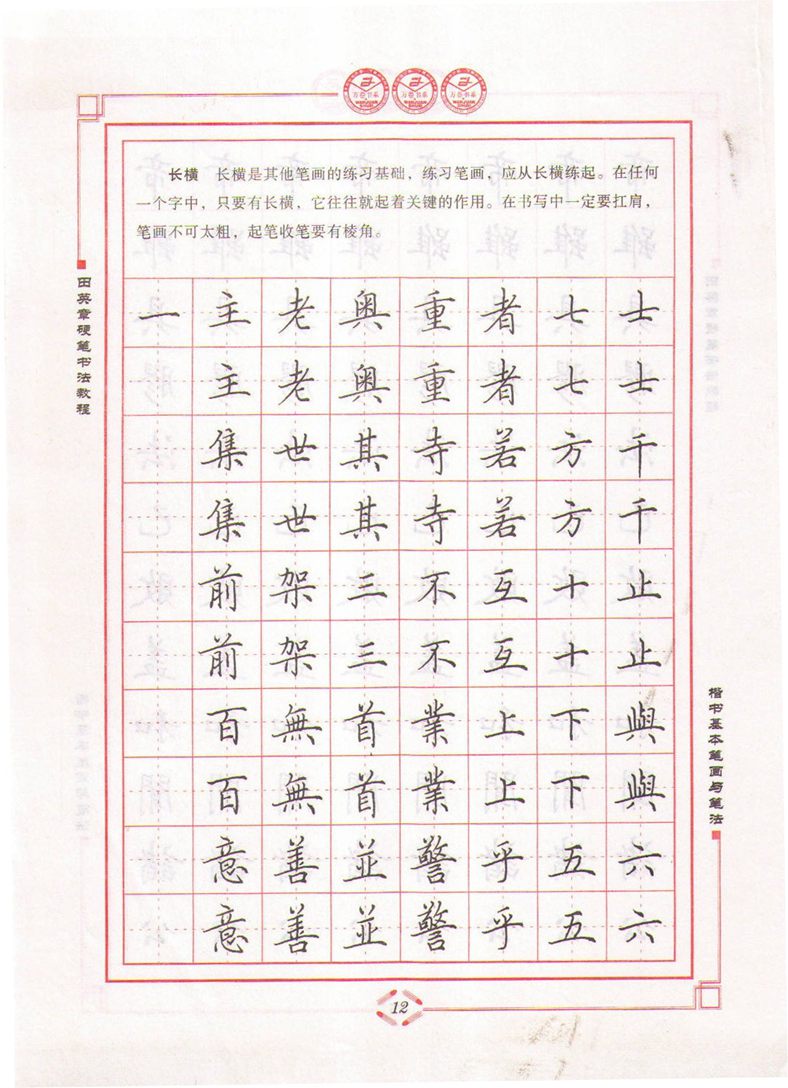 万卷书系 万卷书系 万卷书系
长横 长横是其他笔画的练习基础，练习笔画，应从长横练起。在任何
一个字中，只要有长横，它往往就起着关键的作用。在书写中一定要扛肩，
笔画不可太粗，起笔收笔要有棱角。
田英章硬笔书法教程
一 主 老 奥 重 者 七 士
主 老 奥 重 者 七 士
集 世 其 寺 若 方 千
集 世 其 寺 若 方 千
前 架 三 不 互 十 止
前 架 三 不 互 十 止
百 無 首 業 上 下 與
百 無 首 業 上 下 與
意 善 並 警 乎 五 六
意 善 並 警 乎 五 六
楷书基本笔画与笔法
12